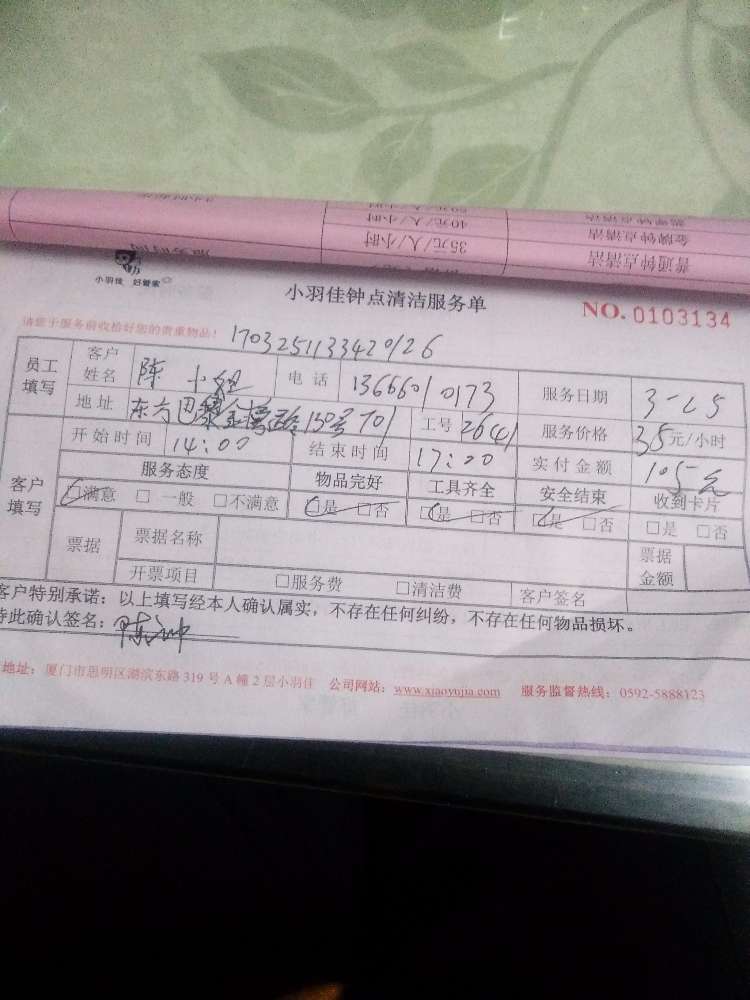 40元/人/小时 金牌钟点清洁
35元/人/小时 普通钟点清洁
小羽佳 好管家
小羽佳钟点清洁服务单
NO. 0103134
请您于服务前收拾好您的贵重物品!
1703251133420126
员工填写 客户姓名 陈小姐 电话 13666010173 服务日期 3-25
地址 东方巴黎金 路130号701 工号 2641 服务价格 35元/小时
客户填写 开始时间 14:00 结束时间 17:00 实付金额 105元
服务态度 物品完好 工具齐全 安全结束 收到卡片
□满意 □一般 □不满意 □是 □否 □是 □否 □是 □否 □是 □否
票据 票据名称 票据金额
开票项目 □服务费 □清洁费 客户签名
客户特别承诺:以上填写经本人确认属实,不存在任何纠纷,不存在任何物品损坏。
特此确认签名:陈
地址:厦门市思明区湖滨东路319号A幢2层小羽佳 公司网站:www.xiaoyujia.com 服务监督热线:0592-5888123